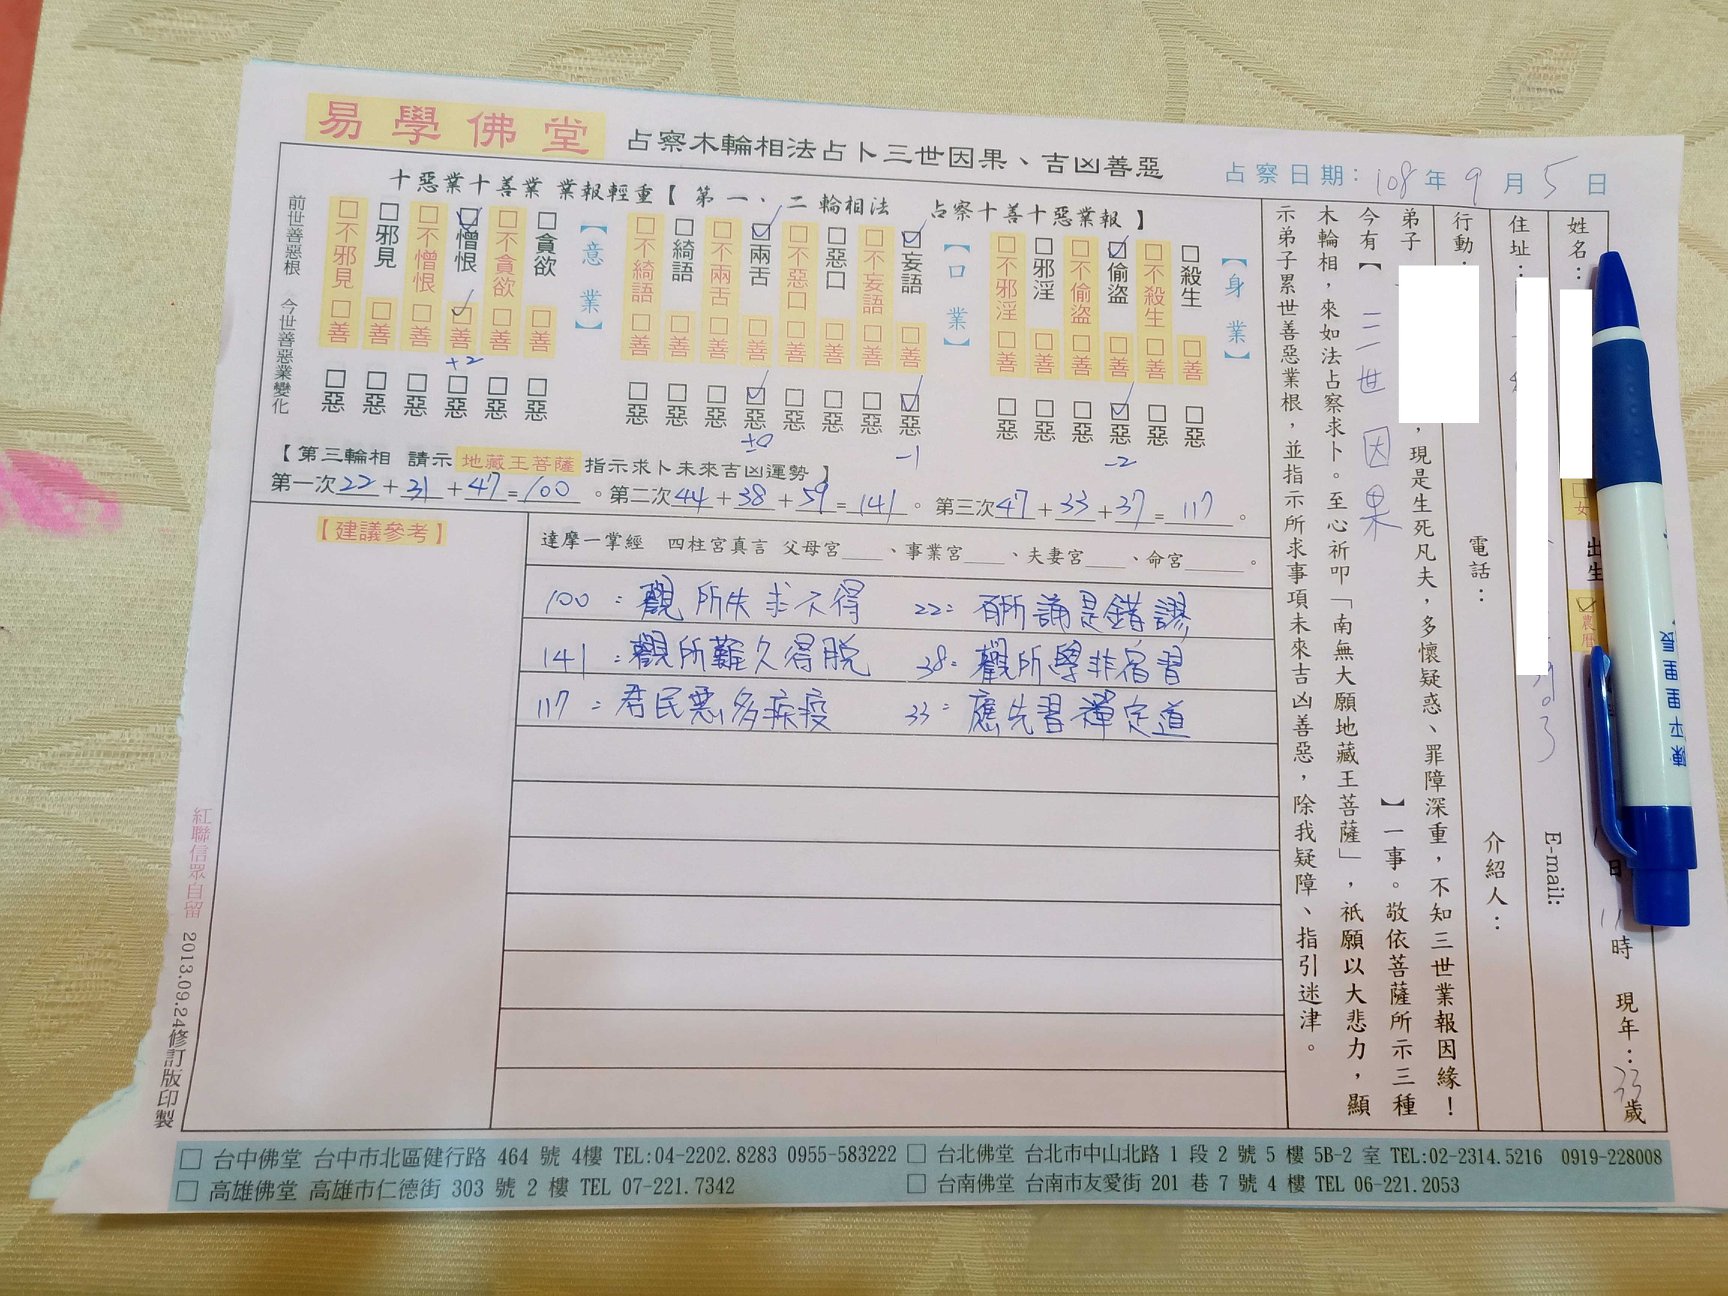 易學佛堂 占察木輪相法占卜三世因果、吉凶善惡
占察日期：108年9月5日
姓名：
女
出生
農曆
日
11時
現年：33歲
住址：
E-mail:
行動：
電話：
介紹人：
弟子
，現是生死凡夫，多懷疑惑、罪障深重，不知三世業報因緣！
今有【三世因果】一事。敬依菩薩所示三種
木輪相，來如法占察求卜。至心祈叩「南無大願地藏王菩薩」，祇願以大悲力，顯
示弟子累世善惡業根，並指示所求事項未來吉凶善惡，除我疑障、指引迷津。
十惡業十善業 業報輕重【第一、二輪相法 占察十善十惡業報】
【身業】
□殺生 □善 □惡
□不殺生 □善 □惡
☑偷盜 □善 ☑惡 -2
□不偷盜 □善 □惡
□邪淫 □善 □惡
□不邪淫 □善 □惡
【口業】
☑妄語 □善 ☑惡 -1
□不妄語 □善 □惡
□惡口 □善 □惡
□不惡口 □善 □惡
☑兩舌 □善 ☑惡 ±0
□不兩舌 □善 □惡
□綺語 □善 □惡
□不綺語 □善 □惡
【意業】
□貪欲 □善 □惡
□不貪欲 □善 □惡
☑憎恨 ☑善 +2 □惡
□不憎恨 □善 □惡
□邪見 □善 □惡
□不邪見 □善 □惡
前世善惡根 今世善惡業變化
【第三輪相 請示地藏王菩薩指示求卜未來吉凶運勢】
第一次22+31+47=100。第二次44+38+59=141。第三次47+33+37=117。
【建議參考】
達摩一掌經 四柱宮真言 父母宮____、事業宮____、夫妻宮____、命宮____。
100：觀所失求不得 22：所誦是錯謬
141：觀所難久得脫 38：觀所學非宿習
117：君民惡多疾疫 33：應先習禪定道
紅聯信眾自留 2013.09.24修訂版印製
□ 台中佛堂 台中市北區健行路 464 號 4樓 TEL:04-2202.8283 0955-583222 □ 台北佛堂 台北市中山北路 1 段 2 號 5 樓 5B-2 室 TEL:02-2314.5216 0919-228008
□ 高雄佛堂 高雄市仁德街 303 號 2 樓 TEL 07-221.7342 □ 台南佛堂 台南市友愛街 201 巷 7 號 4 樓 TEL 06-221.2053
陳平里里長